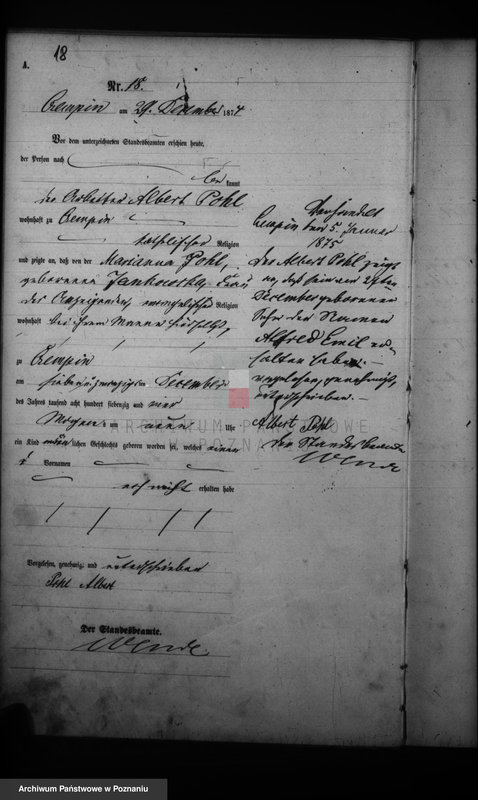 18
A.
Nr. 18.
Czempin am 29. Dezember 1874
Vor dem unterzeichneten Standesbeamten erschien heute,
der Person nach
bekannt
der Arbeiter Albert Pohl
wohnhaft zu Czempin
katholischer Religion
und zeigte an, daß von der Marianna Pohl,
geborenen Jankowska, Frau
des Anzeigenden, evangelischer Religion
wohnhaft bei ihrem Manne
zu Czempin
am siebenundzwanzigsten Dezember
des Jahres tausend acht hundert siebenzig und vier
Morgens um neun Uhr
ein Kind männlichen Geschlechts geboren worden sei, welches einen
Vornamen
noch nicht erhalten habe
Vorgelesen, genehmigt und unterschrieben
Pohl Albert
Der Standesbeamte.
Wende
Verhandelt
Czempin den 5. Januar
1875
Der Albert Pohl zeigt
an, daß sein am 27sten
Dezember geborener
Sohn den Namen
Alfred Emil er-
halten habe.
vorgelesen, genehmigt,
unterschrieben.
Albert Pohl
Der Standesbeamte
Wende
ARCHIWUM PAŃSTWOWE
W POZNANIU
Archiwum Państwowe w Poznaniu